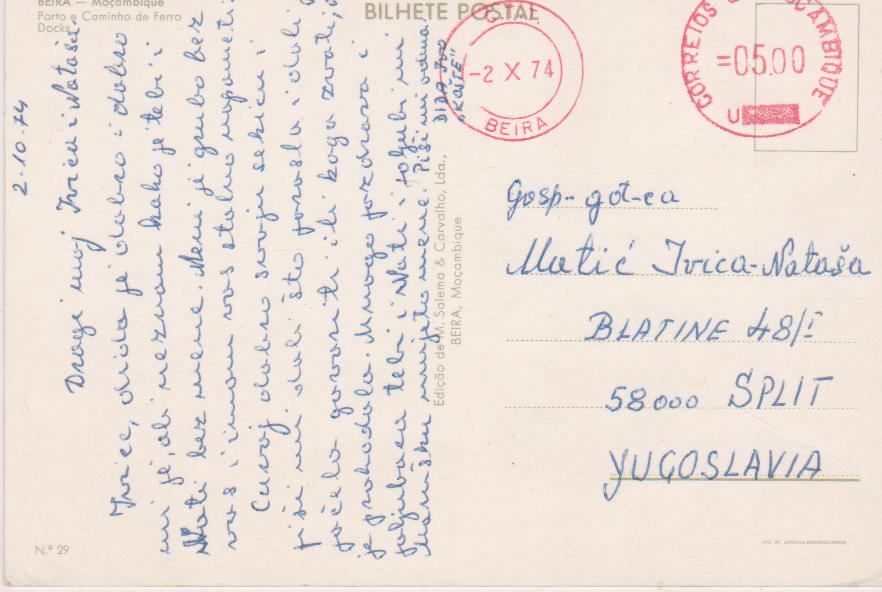 BEIRA — Moçambique
Porto e Caminho de Ferro
Docks
BILHETE POSTAL
-2 X 74
BEIRA
CORREIOS MOÇAMBIQUE
=05.00
U
2-10-74
Dragi moj Ivica i Nataša.
Ivice, dida je dobro i dobro
mi je, ali neznam kako je tebi i
Nati bez mene. Meni je grubo bez
vas i imam vas stalno u pameti.
Čuvaj dobro svoju sekicu i
piši mi dali što porasla i dali
počela govoriti ili koga zvati,
je prohodala. Mnogo pozdrava i
poljubaca tebi i Nati i poljubi mi
mamšku umjesto mene. Piši mi odma
DIDA IVO
"KOŠTE"
Edição de M. Salema & Carvalho, Lda.,
BEIRA, Moçambique
Gosp- gđ-ca
Matić Ivica-Nataša
BLATINE 48/I
58000 SPLIT
YUGOSLAVIA
N.º 29